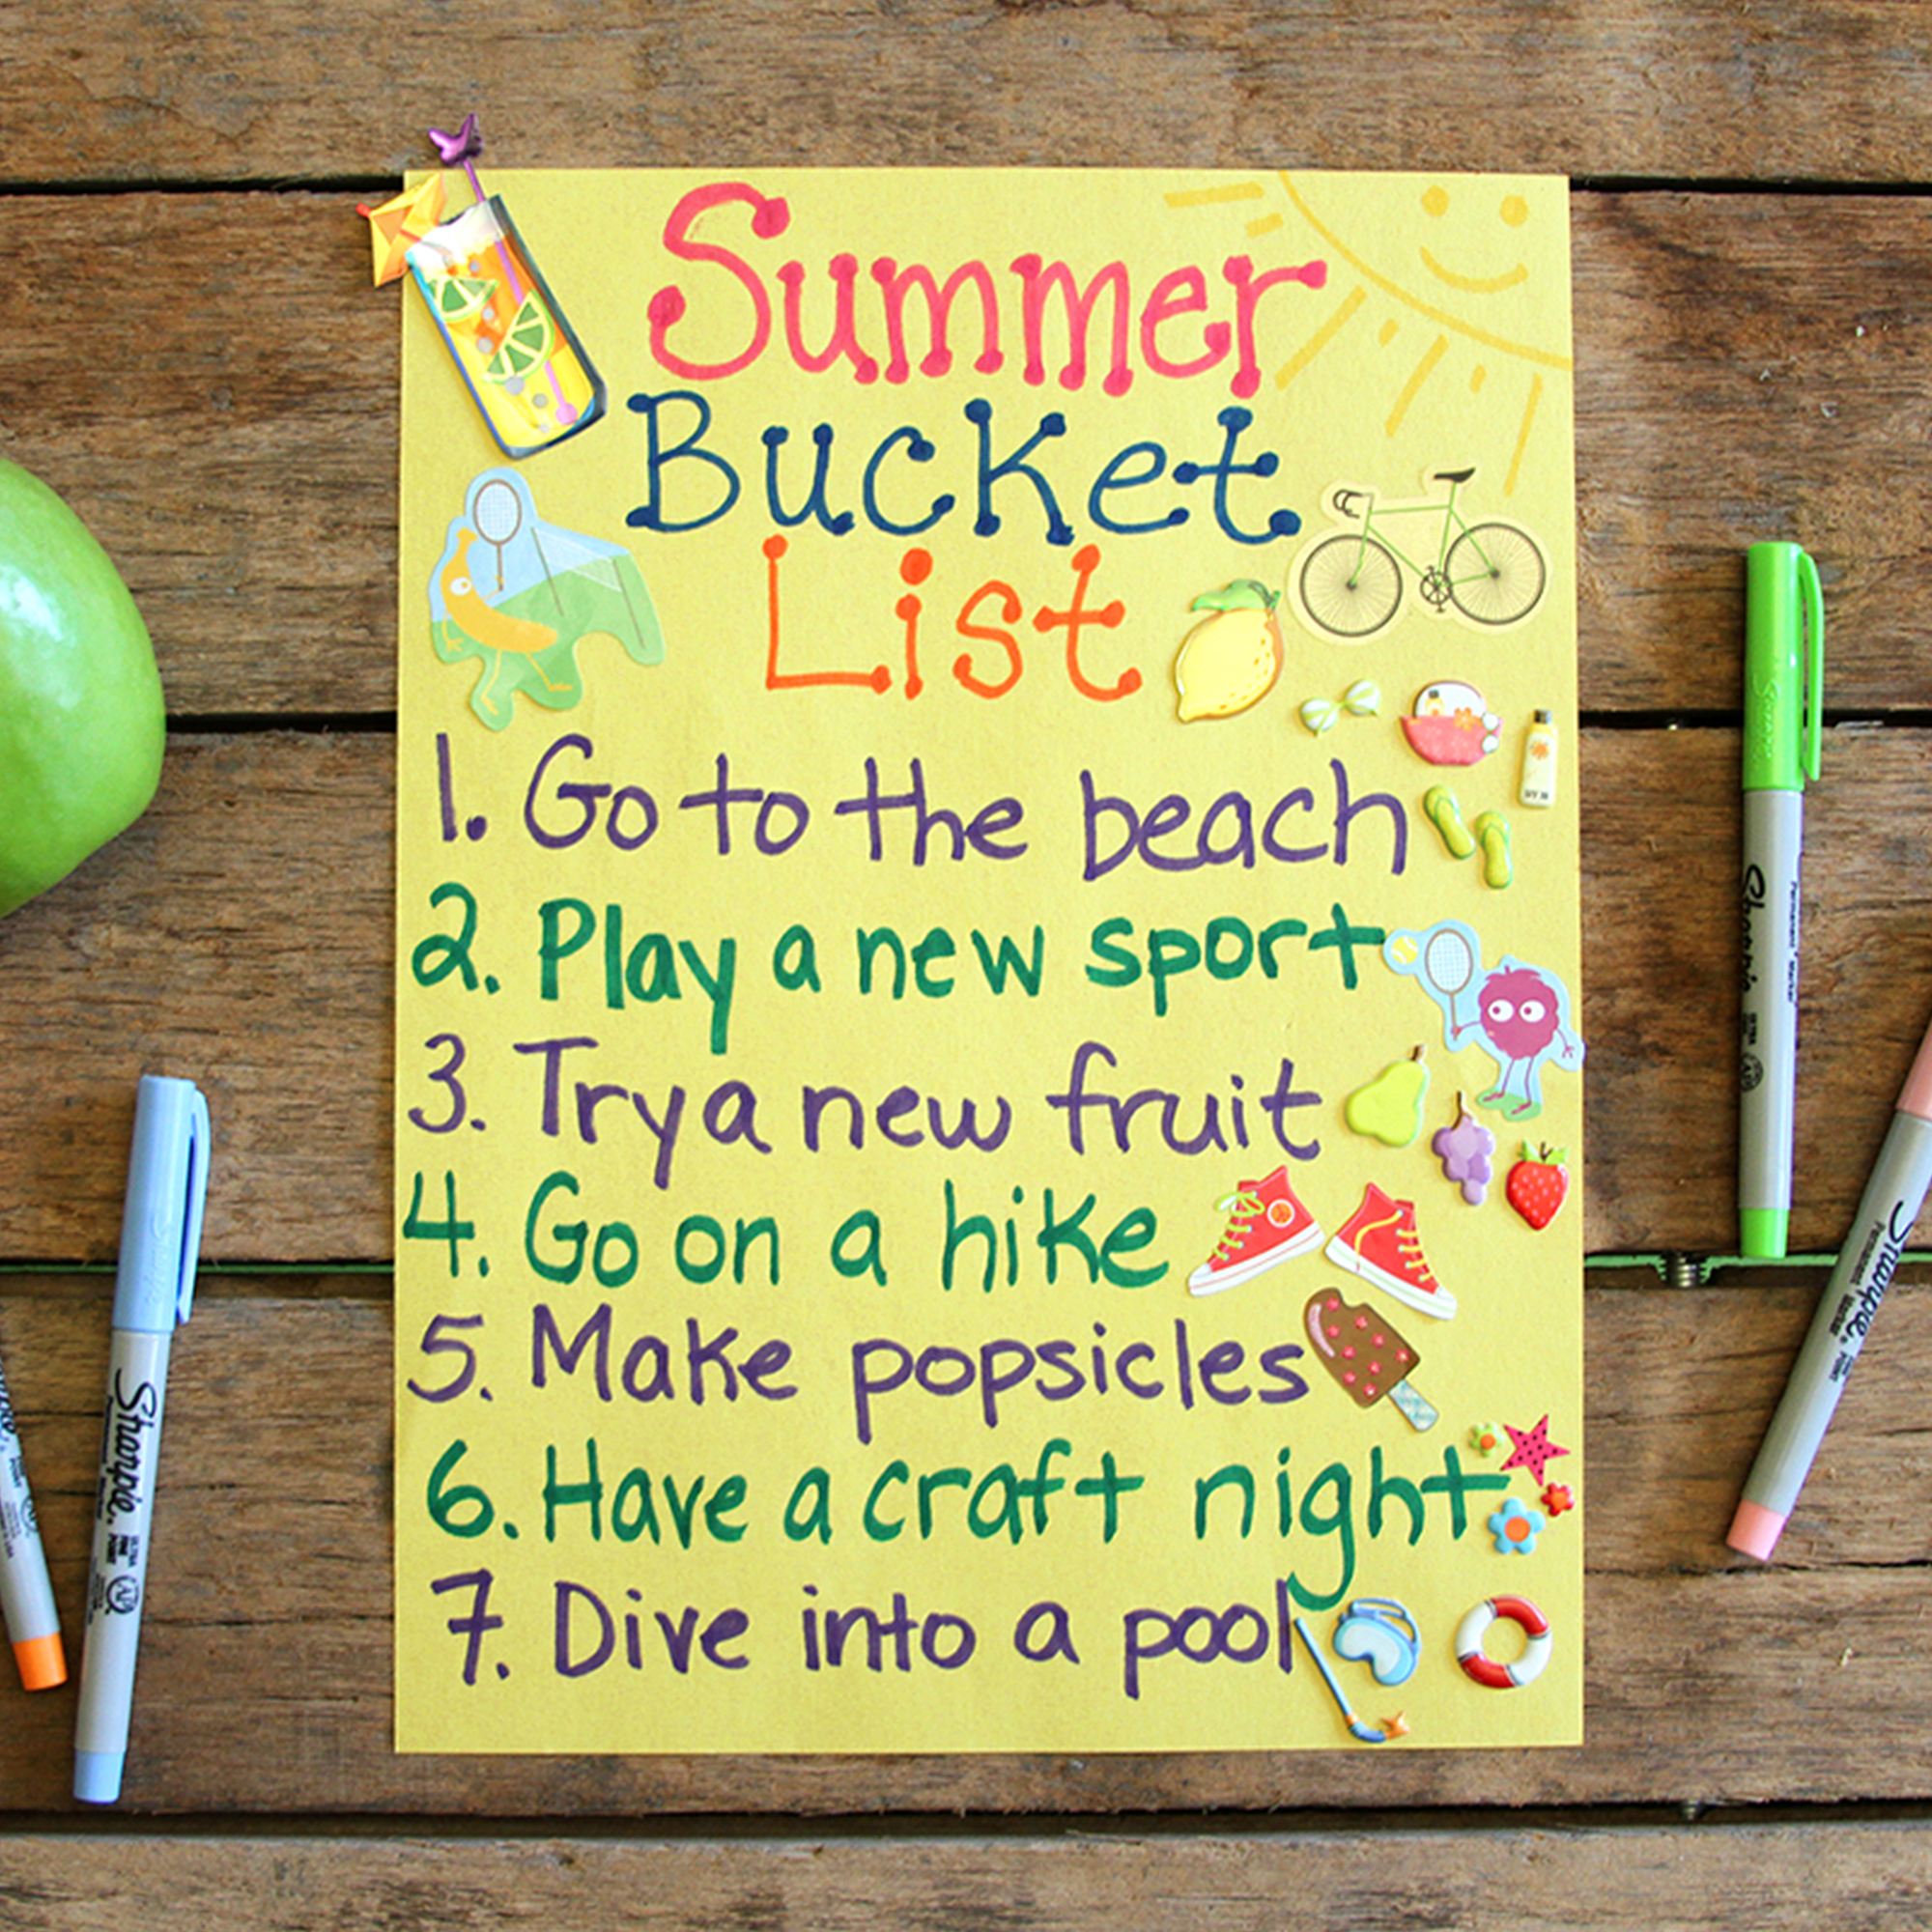 Summer
Bucket
List
1. Go to the beach
2. Play a new sport
3. Try a new fruit
4. Go on a hike
5. Make popsicles
6. Have a craft night
7. Dive into a pool
Sharpie
Sharpie
Sharpie